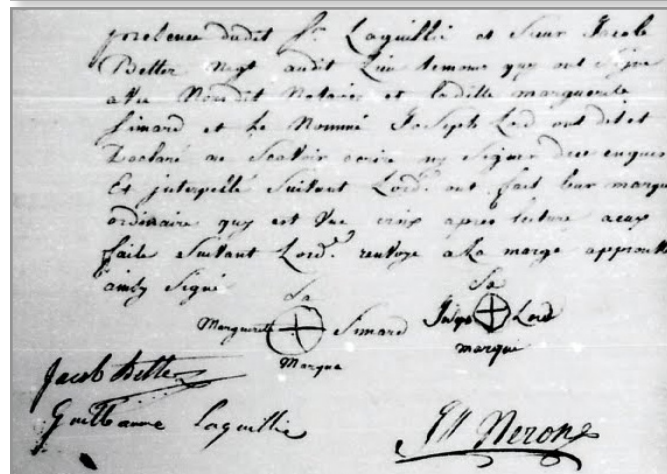 presence dudit Sr. Laguillie et Sieur Jacob
Better Negt audit Lieu temoins quy ont Signé
avec Nousdit Notaire et laditte marguerite
Simard et Le Nommé Joseph Lord ont dit et
Declaré ne Scavoir ecrire ny Signer de ce enquis
Et interpéllé Suivant Lord. ont fait leur marque
ordinaire quy est Une croix apres lecture aeux
faite Suivant Lord. renvoye a La marge approuvé
ainsy Signé
Sa Sa
Marguerite Simard Joseph Lord
Marque marque
Jacob Better
Guilleaume Laguillie
Nerong